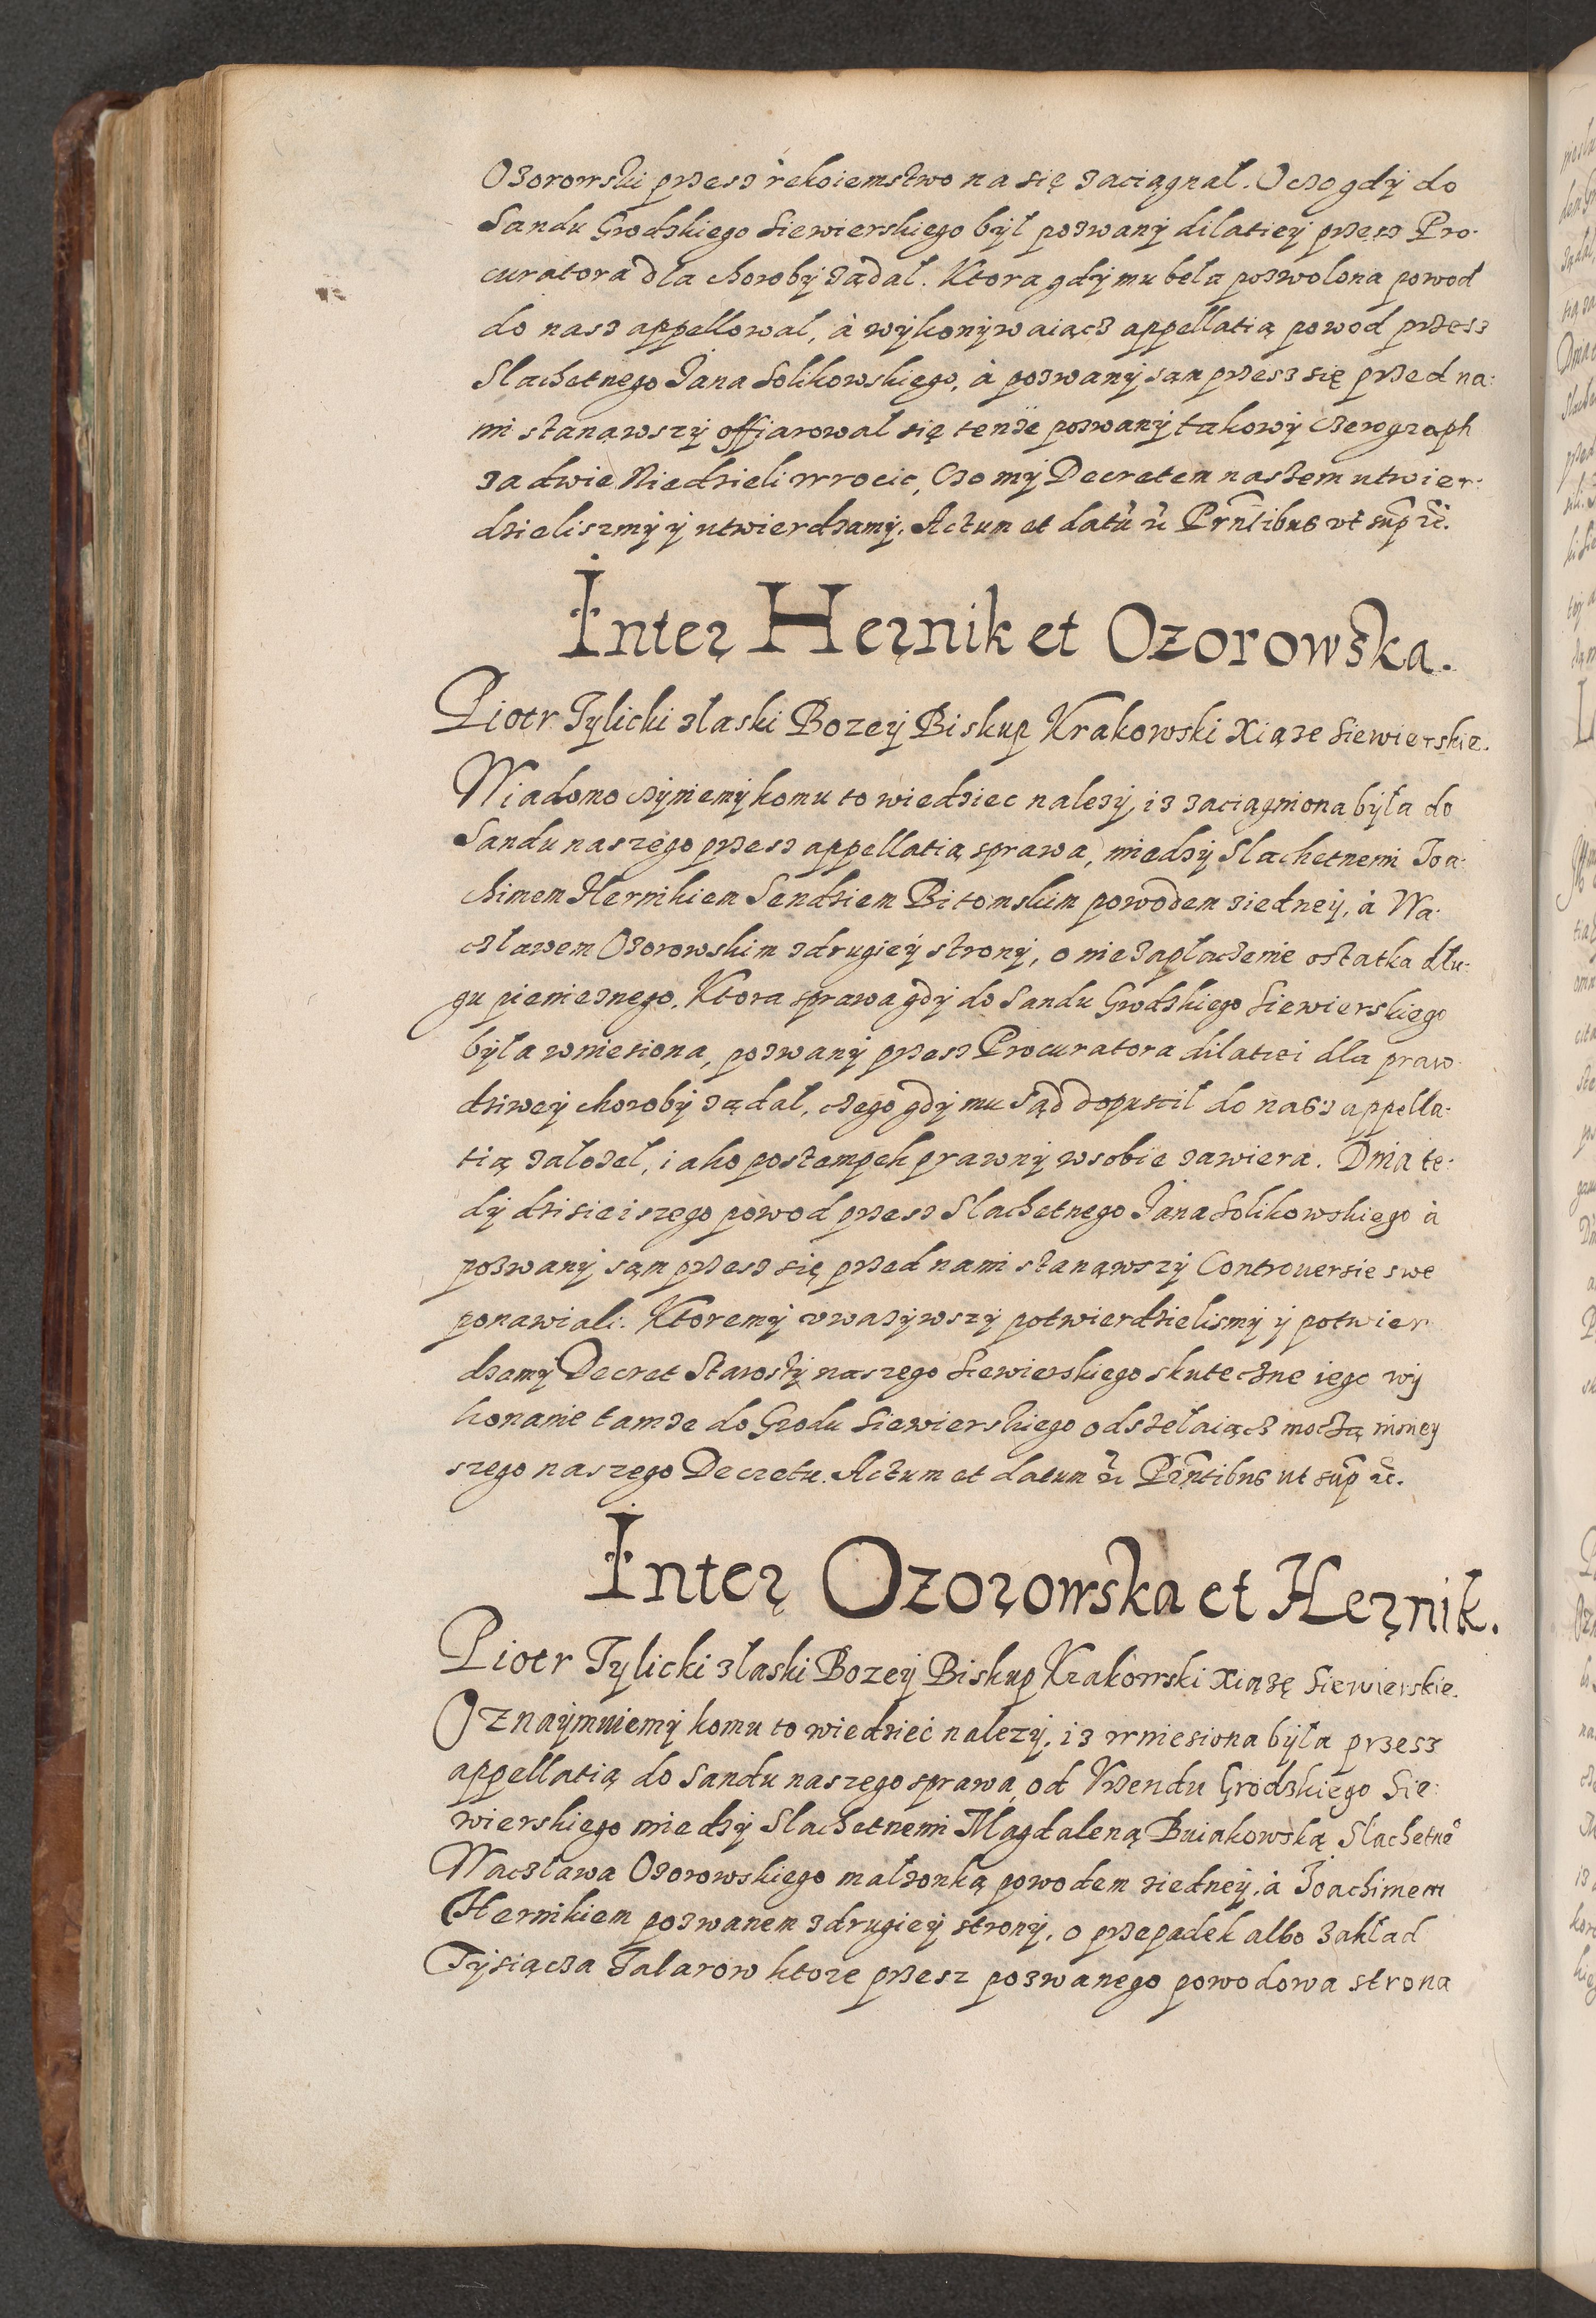 Ozorowski przesz rekoiemstwo na się zaciągnal. O czo gdÿ do
Sandu Grodskiego Siewierskiego bÿl pozwanÿ dilatieÿ przesz Pro-
curatora dla chorobÿ ządal. Ktora gdÿ mu beła pozwolona powod
do nasz appellowal, à wÿkonÿwaiącz appellatią powod przesz
Slachetnego Jana Solikowskiego, à pozwanÿ sam przesz się przed na:
mi stanąwszÿ offiarowal się tenze pozwanÿ takowÿ Czerograph
za dwie Niedzieli wrocic, Czo mÿ Decretem naszem utwier:
dzieliszmÿ ÿ utwierdzamÿ. Actum et datũ ꝛc Prñtibus vt sup̃ ꝛc̃.
Inter Hernik et Ozorowska.
Piotr Tylicki złaski Bozeÿ Biskup Krakowski Xiąze Siewierskie.
Wiadomo czÿniemÿ komu to wiedziec nalezÿ, iz zaciągniona bÿła do
Sandu naszego przesz appellatią sprawa, miedzÿ Slachetnemi Joa-
chimem Hernikiem Sendziem Bitomskim powodem ziedneÿ, à Wa-
czlawem Ozorowskim zdrugieÿ stronÿ, o niezaplaczenie ostatka dłu-
gu pienieznego. Ktora sprawa gdÿ do Sandu Grodskiego Siewierskiego
bÿła wniesiona, pozwanÿ przesz Procuratora dilatiei dla praw-
dziweÿ chorobÿ ządal, czego gdÿ mu Sąd dopuscił do nasz appella-
tią załozel, iako postempek prawnÿ wsobie zawiera. Dnia te-
dÿ dzisieiszego powod przesz Slachetnego Jana Solikowskiego à
pozwanÿ sąm przesz się przed nami stanąwszÿ Controuersie swe
ponawiali. Ktore mÿ vwazÿwszÿ potwierdzielismÿ ÿ potwier
dzamÿ Decret Starostÿ naszego Siewierskiego skuteczne iego wÿ
konanie tamze do Grodu Siewierskiego odszełaiącz moczą ninieÿ
szego naszego Decretu. Actum et datum ꝛc Prñtibus ut sup̃ ꝛc̃.
Inter Ozorowska et Hernik.
Piotr Tylicki złaski Bozeÿ Biskup Krakowski Xiązę Siewierskie.
Oznaÿmuiemÿ komu to wiedzieć nalezÿ, iz wniesiona bÿła przesz
appellatią do Sandu naszego sprawa, od Vrzendu Grodzkiego Sie-
wierskiego miedzÿ Slachetnemi Magdaleną Buiakowską Slachetne°
Waczława Ozorowskiego małzonką powodem ziedneÿ, à Joachimem
Hernikiem pozwanem zdrugieÿ stronÿ, o przepadek albo zakład
Tÿsiącza Talarow ktore przesz pozwanego powodowa strona